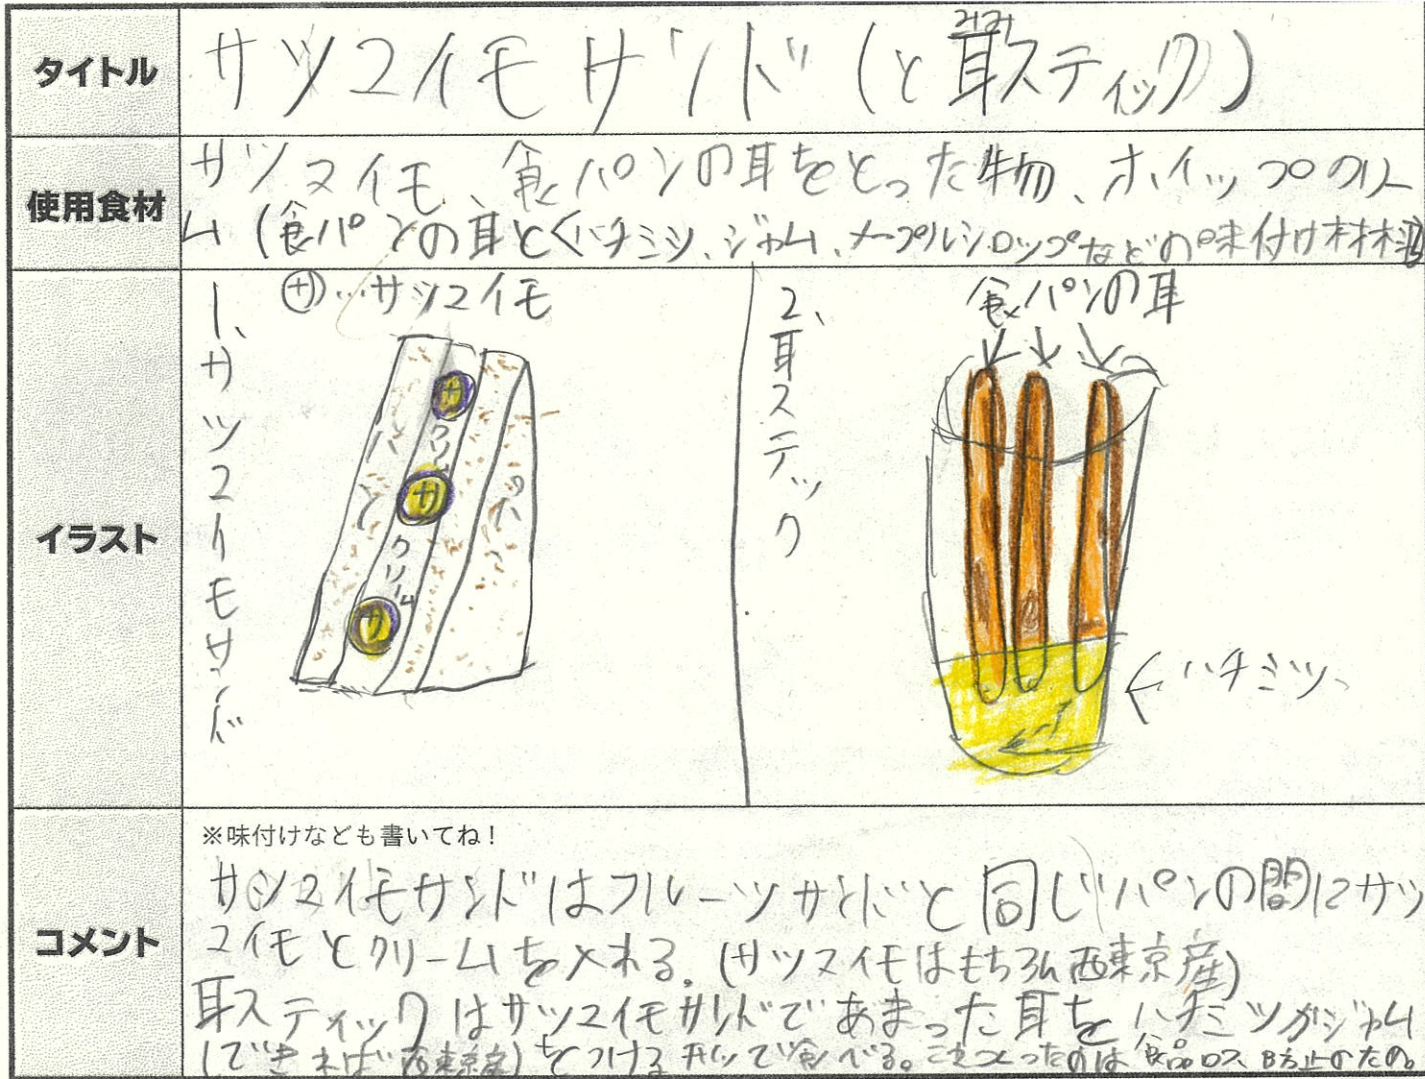 タイトル
サツマイモサンド(と耳スティック)
みみ
使用食材
サツマイモ、食パンの耳をとった物、ホイップクリー
ム(食パンの耳とハチミツ、ジャム、メープルシロップなどの味付け材料)
イラスト
1、サツマイモサンド
サ…サツマイモ
パン
サ
クリーム
サ
クリーム
サ
パン
2、耳スティック
食パンの耳
ハチミツ
コメント
※味付けなども書いてね!
サツマイモサンドはフルーツサンドと同じパンの間にサツ
マイモとクリームを入れる。(サツマイモはもちろん西東京産)
耳スティックはサツマイモサンドであまった耳をハチミツかジャム
(できれば西東京産)をつける形で食べる。これをつくったのは食品ロス防止のため。